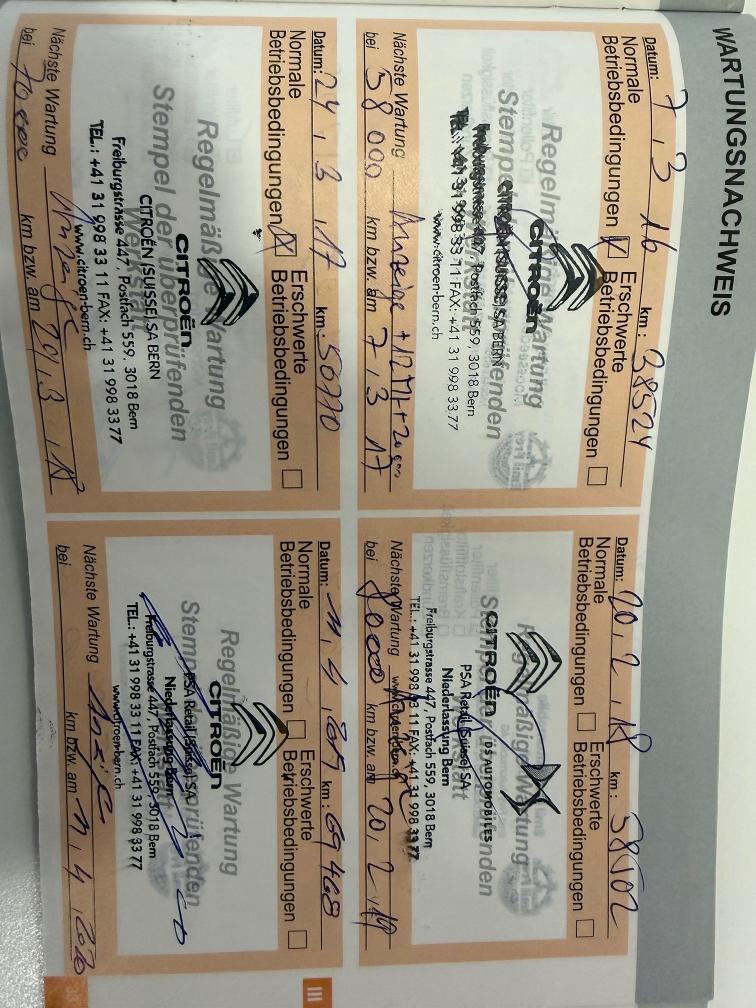 WARTUNGSNACHWEIS
Datum: 7.3 16 km: 38524
Normale Betriebsbedingungen Erschwerte Betriebsbedingungen
Regelmäßige Wartung
Stempel überprüfenden
CITROËN
CITROËN (SUISSE) SA BERN
Freiburgstrasse 447, Postfach 559, 3018 Bern
TEL.: +41 31 998 33 11 FAX: +41 31 998 33 77
www.citroen-bern.ch
Nächste Wartung Anzeige +12M+
bei 58 000 km bzw. am 7.3 17
Datum: 20.2.18 km: 58502
Normale Betriebsbedingungen Erschwerte Betriebsbedingungen
Regelmäßige Wartung
CITROËN DS AUTOMOBILES
PSA Retail (Suisse) SA
Niederlassung Bern
Freiburgstrasse 447, Postfach 559, 3018 Bern
TEL.: +41 31 998 33 11 FAX: +41 31 998 33 77
Nächste Wartung
bei 80000 km bzw. am 20.2.19
Datum: 24.3.17 km: 50770
Normale Betriebsbedingungen Erschwerte Betriebsbedingungen
Regelmäßige Wartung
Stempel der überprüfenden
Werkstatt
CITROËN
CITROËN (SUISSE) SA BERN
Freiburgstrasse 447, Postfach 559, 3018 Bern
TEL.: +41 31 998 33 11 FAX: +41 31 998 33 77
www.citroen-bern.ch
Nächste Wartung Anzeige
bei 70000 km bzw. am 20.3.18
Datum: 11.4.2019 km: 69468
Normale Betriebsbedingungen Erschwerte Betriebsbedingungen
Regelmäßige Wartung
Stempel überprüfenden
CITROËN
PSA Retail (Suisse) SA
Niederlassung Bern
Freiburgstrasse 447, Postfach 559, 3018 Bern
TEL.: +41 31 998 33 11 FAX: +41 31 998 33 77
www.citroen-bern.ch
Nächste Wartung Anzeige
bei km bzw. am 11.4.2020
III